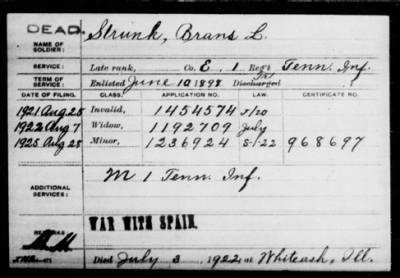 DEAD.
NAME OF SOLDIER: Strunk, Brans L.
SERVICE: Late rank, Co. E, 1 Reg't Tenn. Inf.
TERM OF SERVICE: Enlisted June 10 1898 Discharged
DATE OF FILING. CLASS. APPLICATION NO. LAW. CERTIFICATE NO.
1921 Aug 25 Invalid, 1454574 5/20
1922 Aug 7 Widow, 1192709 July
1925 Aug 28 Minor, 1236924 5-1-22 968697
ADDITIONAL SERVICES: M 1 Tenn. Inf.
REMARKS: WAR WITH SPAIN.
Died July 3, 1922, at Whiteash, Ill.